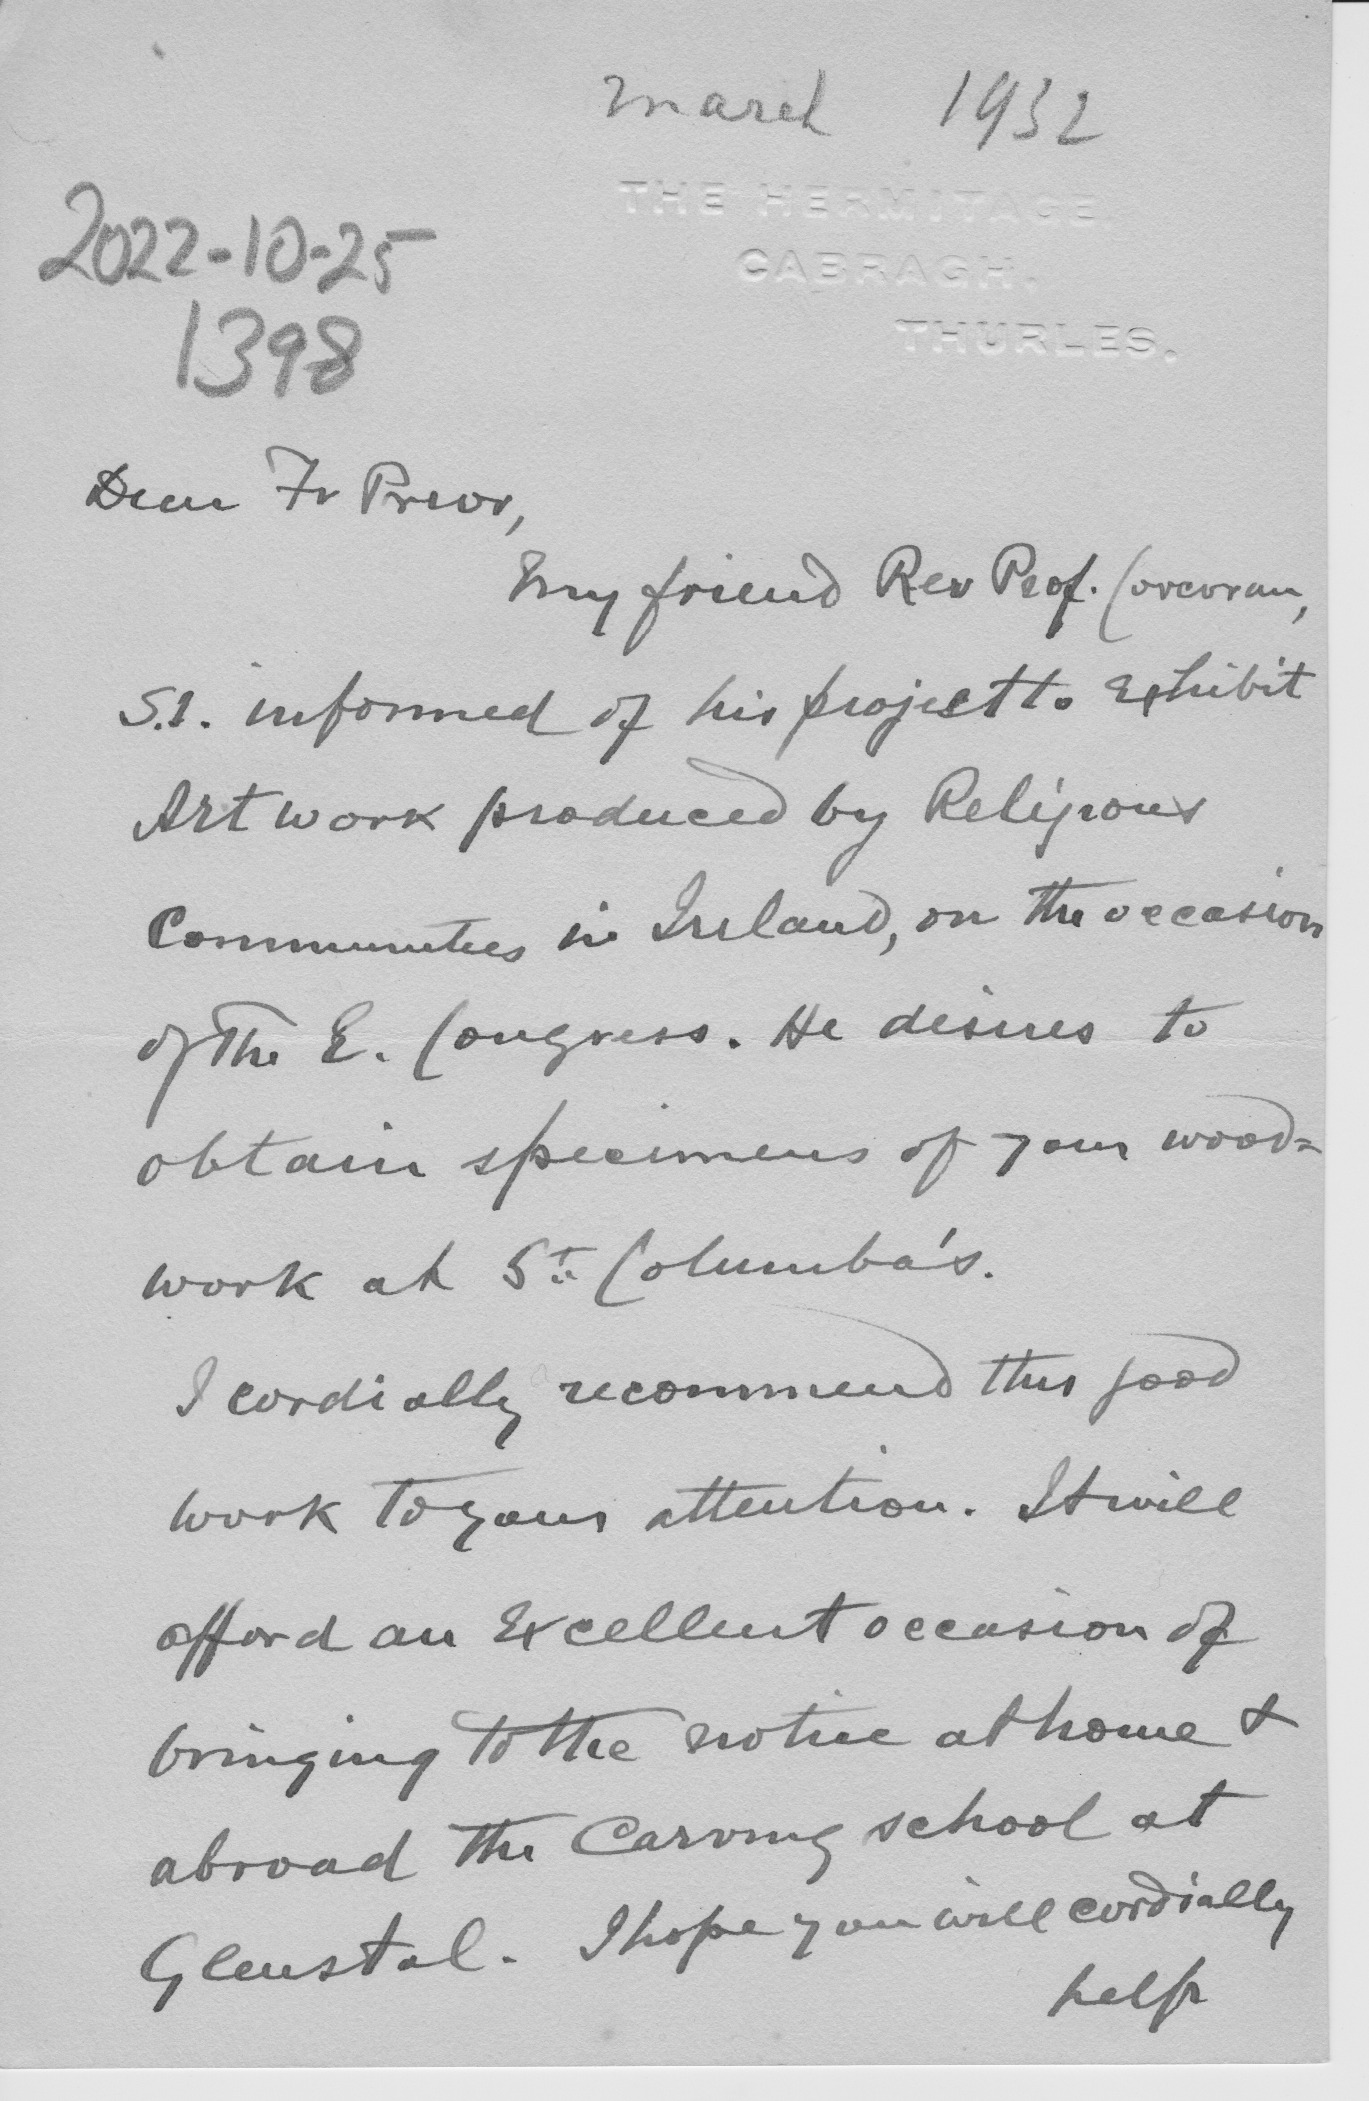 March 1932
THE HERMITAGE
CABRAGH.
THURLES.
2022-10-25
1398
Dear Fr Prior,
My friend Rev Prof. Corcoran,
S.J. informed of his project to exhibit
Art work produced by Religious
Communities in Ireland, on the occasion
of the E. Congress. He desires to
obtain specimens of your wood=
work at St. Columba's.
I cordially recommend this good
work to your attention. It will
afford an excellent occasion of
bringing to the notice at home &
abroad the Carving school at
Glenstal. I hope you will cordially
help